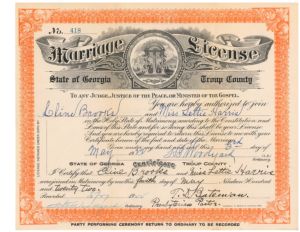 No. 418
Marriage License
State of Georgia Troup County
TO ANY JUDGE, JUSTICE OF THE PEACE, OR MINISTER OF THE GOSPEL.
You are hereby authorized to join
Cline Brooks and Miss Lettie Harris
in the Holy State of Matrimony according to the Constitution and
Laws of this State and for so doing this shall be your License.
And you are hereby required to return this License to me with your
Certificate hereon of the fact and date of the Marriage.
Given under my hand and seal this 3rd day of
May
STATE OF GEORGIA Certificate TROUP COUNTY
I Certify that Cline Brooks and Miss Lettie Harris
were joined in Matrimony by me this fourth day of May Nineteen Hundred
and twenty two
PARTY PERFORMING CEREMONY RETURN TO ORDINARY TO BE RECORDED